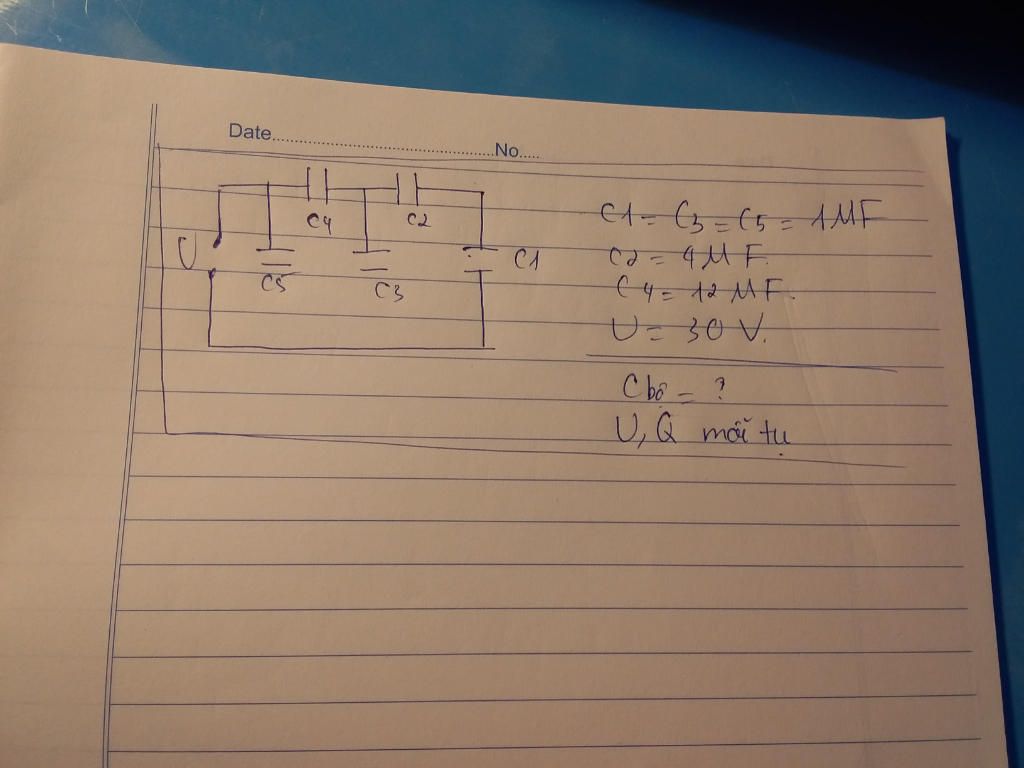 Date.......................................No.....
C4 C2
U C5 C3 C1
C1 = C3 = C5 = 1MF
C2 = 4MF.
C4 = 12MF.
U = 30 V.
C bộ = ?
U, Q mỗi tụ